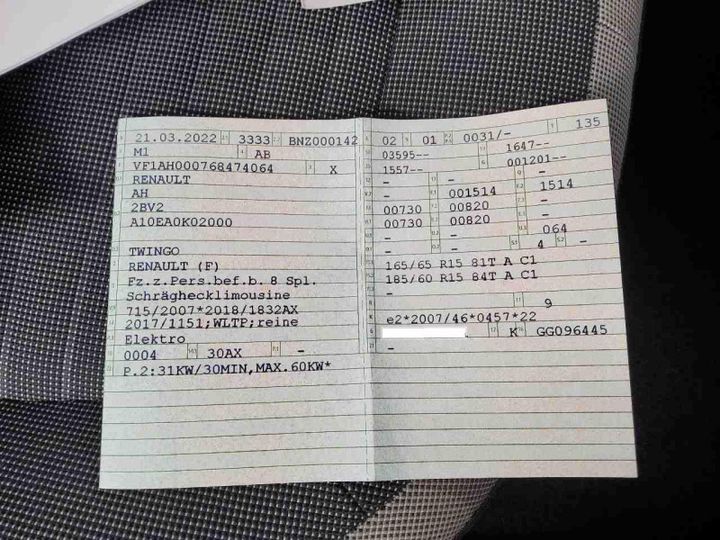 21.03.2022 3333 BNZ000142
M1 AB
VF1AH000768474064 X
RENAULT
AH
2BV2
A10EA0K02000
TWINGO
RENAULT (F)
Fz.z.Pers.bef.b. 8 Spl.
Schräghecklimousine
715/2007*2018/1832AX
2017/1151;WLTP;reine
Elektro
0004 30AX -
P.2:31KW/30MIN,MAX.60KW*
02 01 0031/- 135
03595-- 1647--
1557-- 001201--
- - -
- 001514 1514
00730 00820 -
00730 00820 -
- - 064
- - 4 -
165/65 R15 81T A C1
185/60 R15 84T A C1
- 9
e2*2007/46*0457*22
K GG096445
-